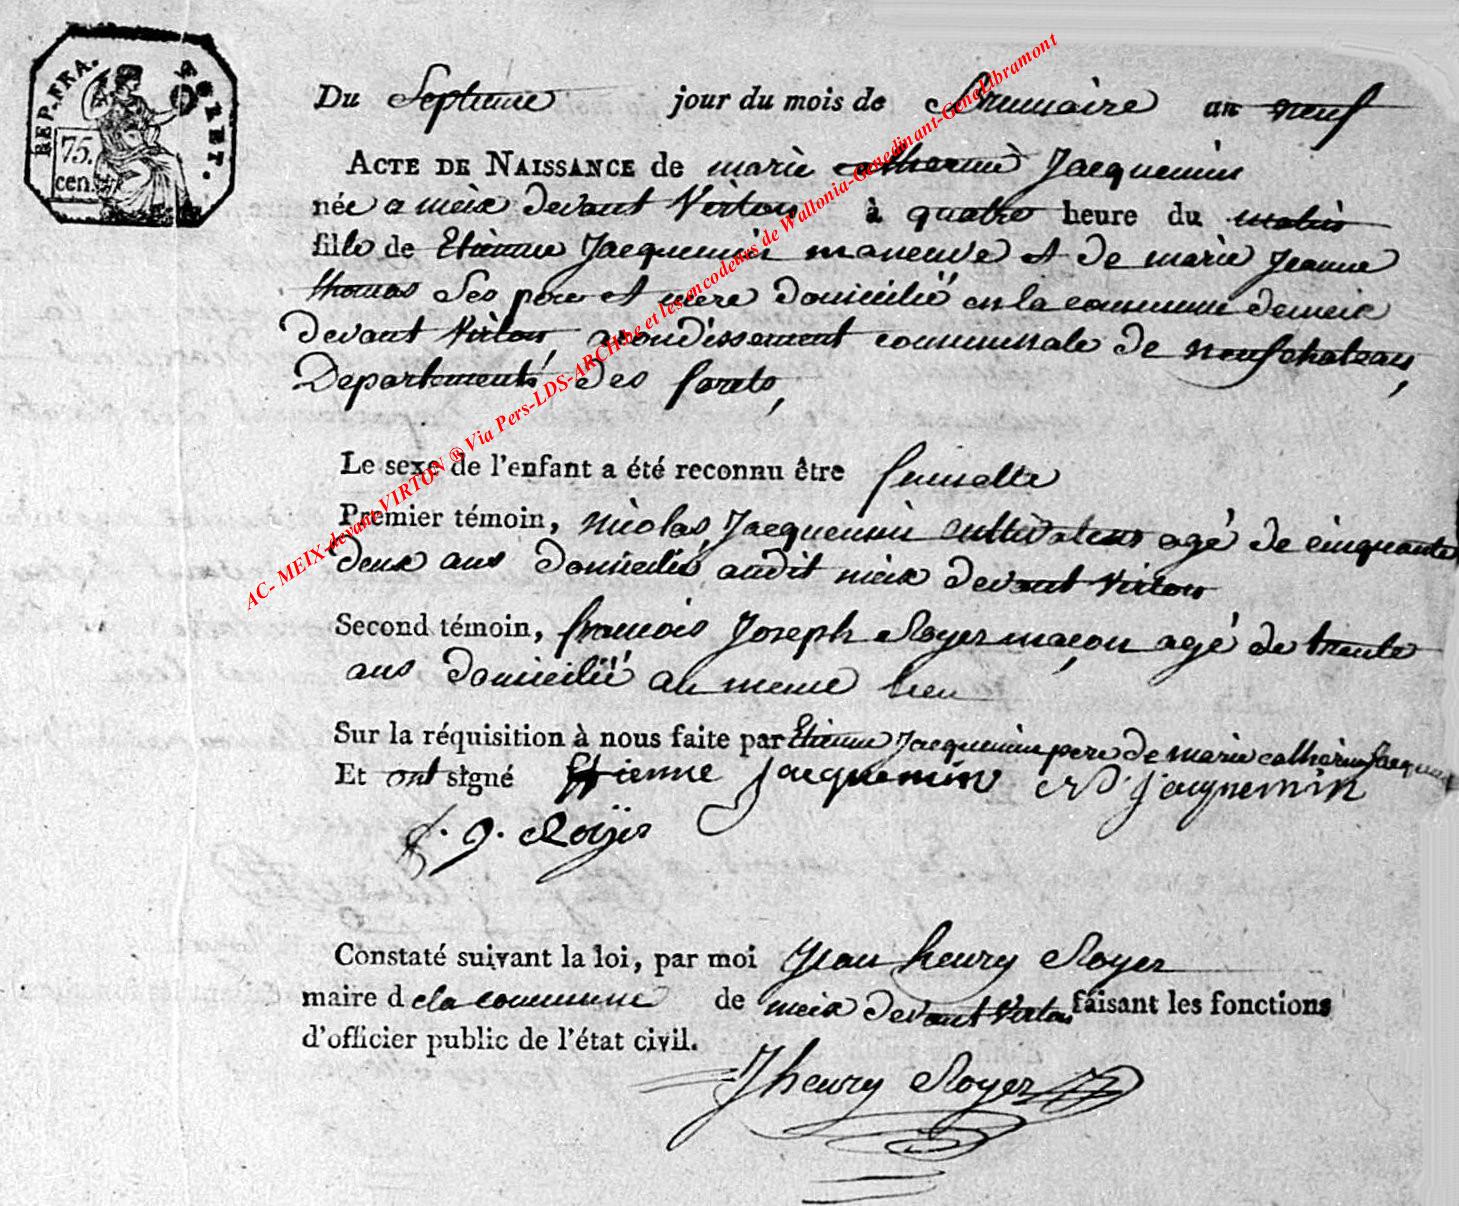 REP. FRA.
75.
cen.
Du Septieme jour du mois de Brumaire an neuf
ACTE DE NAISSANCE de marie catherine Jacquemin
née a meix devant Virton à quatre heure du matin
fille de Etienne Jacquemin maneuve et de marie Jeanne
thomas Ses pere et mere domicilié en la commune de meix
devant Virton, arondissement communale de neufchateau,
Departement des forets,
Le sexe de l'enfant a été reconnu être fumelle
Premier témoin, nicolas Jacquemin cultivateur agé de cinquante
deux ans domicilié audit meix devant Virton
Second témoin, francois Joseph Royer maçon agé de trente
ans domicilié au meme lieu
Sur la réquisition à nous faite par Etienne Jacquemin pere de marie catherine Jacquemin
Et ont signé Etienne Jacquemin N Jacquemin
f. j. Royer
Constaté suivant la loi, par moi Jean henry Royer
maire de la commune de meix devant Virton faisant les fonctions
d'officier public de l'état civil.
J henry Royer
AC- MEIX-devant-VIRTON ® Via Pers-LDS-ARCH.be et les encodeurs de Wallonia-Genedinant-GeneLibramont